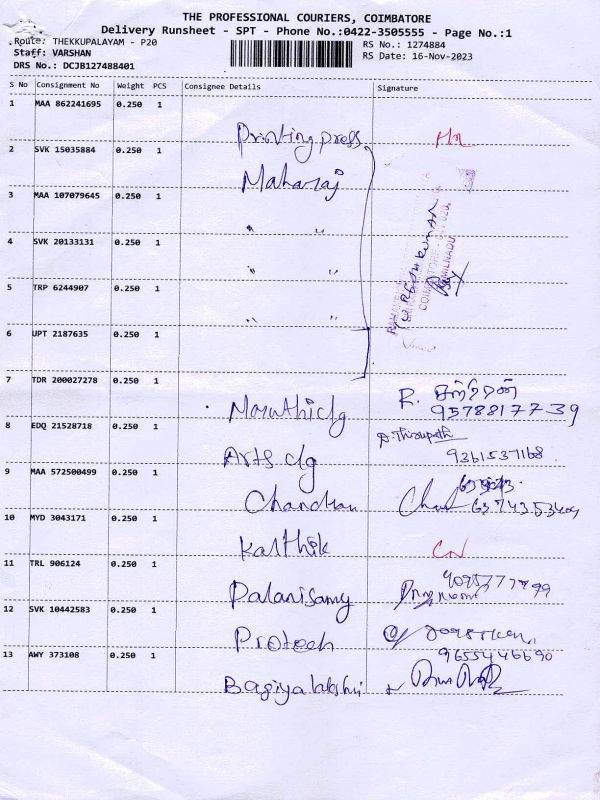 THE PROFESSIONAL COURIERS, COIMBATORE
Delivery Runsheet - SPT - Phone No.:0422-3505555 - Page No.:1
Route: THEKKUPALAYAM - P20
RS No.: 1274884
Staff: VARSHAN
RS Date: 16-Nov-2023
DRS No.: DCJB127488401
S No Consignment No Weight PCS Consignee Details Signature
1 MAA 862241695 0.250 1
Printing press
2 SVK 15035884 0.250 1
Maharaj
3 MAA 107079645 0.250 1
" "
4 SVK 20133131 0.250 1
" "
5 TRP 6244907 0.250 1
" "
6 UPT 2187635 0.250 1
7 TDR 200027278 0.250 1
Maruthi clg R.
9578817739
8 EDQ 21528718 0.250 1
Arts clg 9361537168
9 MAA 572500499 0.250 1
Chandran
10 MYD 3043171 0.250 1
Karthik
11 TRL 906124 0.250 1
Palanisamy
12 SVK 10442583 0.250 1
Protech
9655446690
13 AWY 373108 0.250 1
Bagiyalakshmi